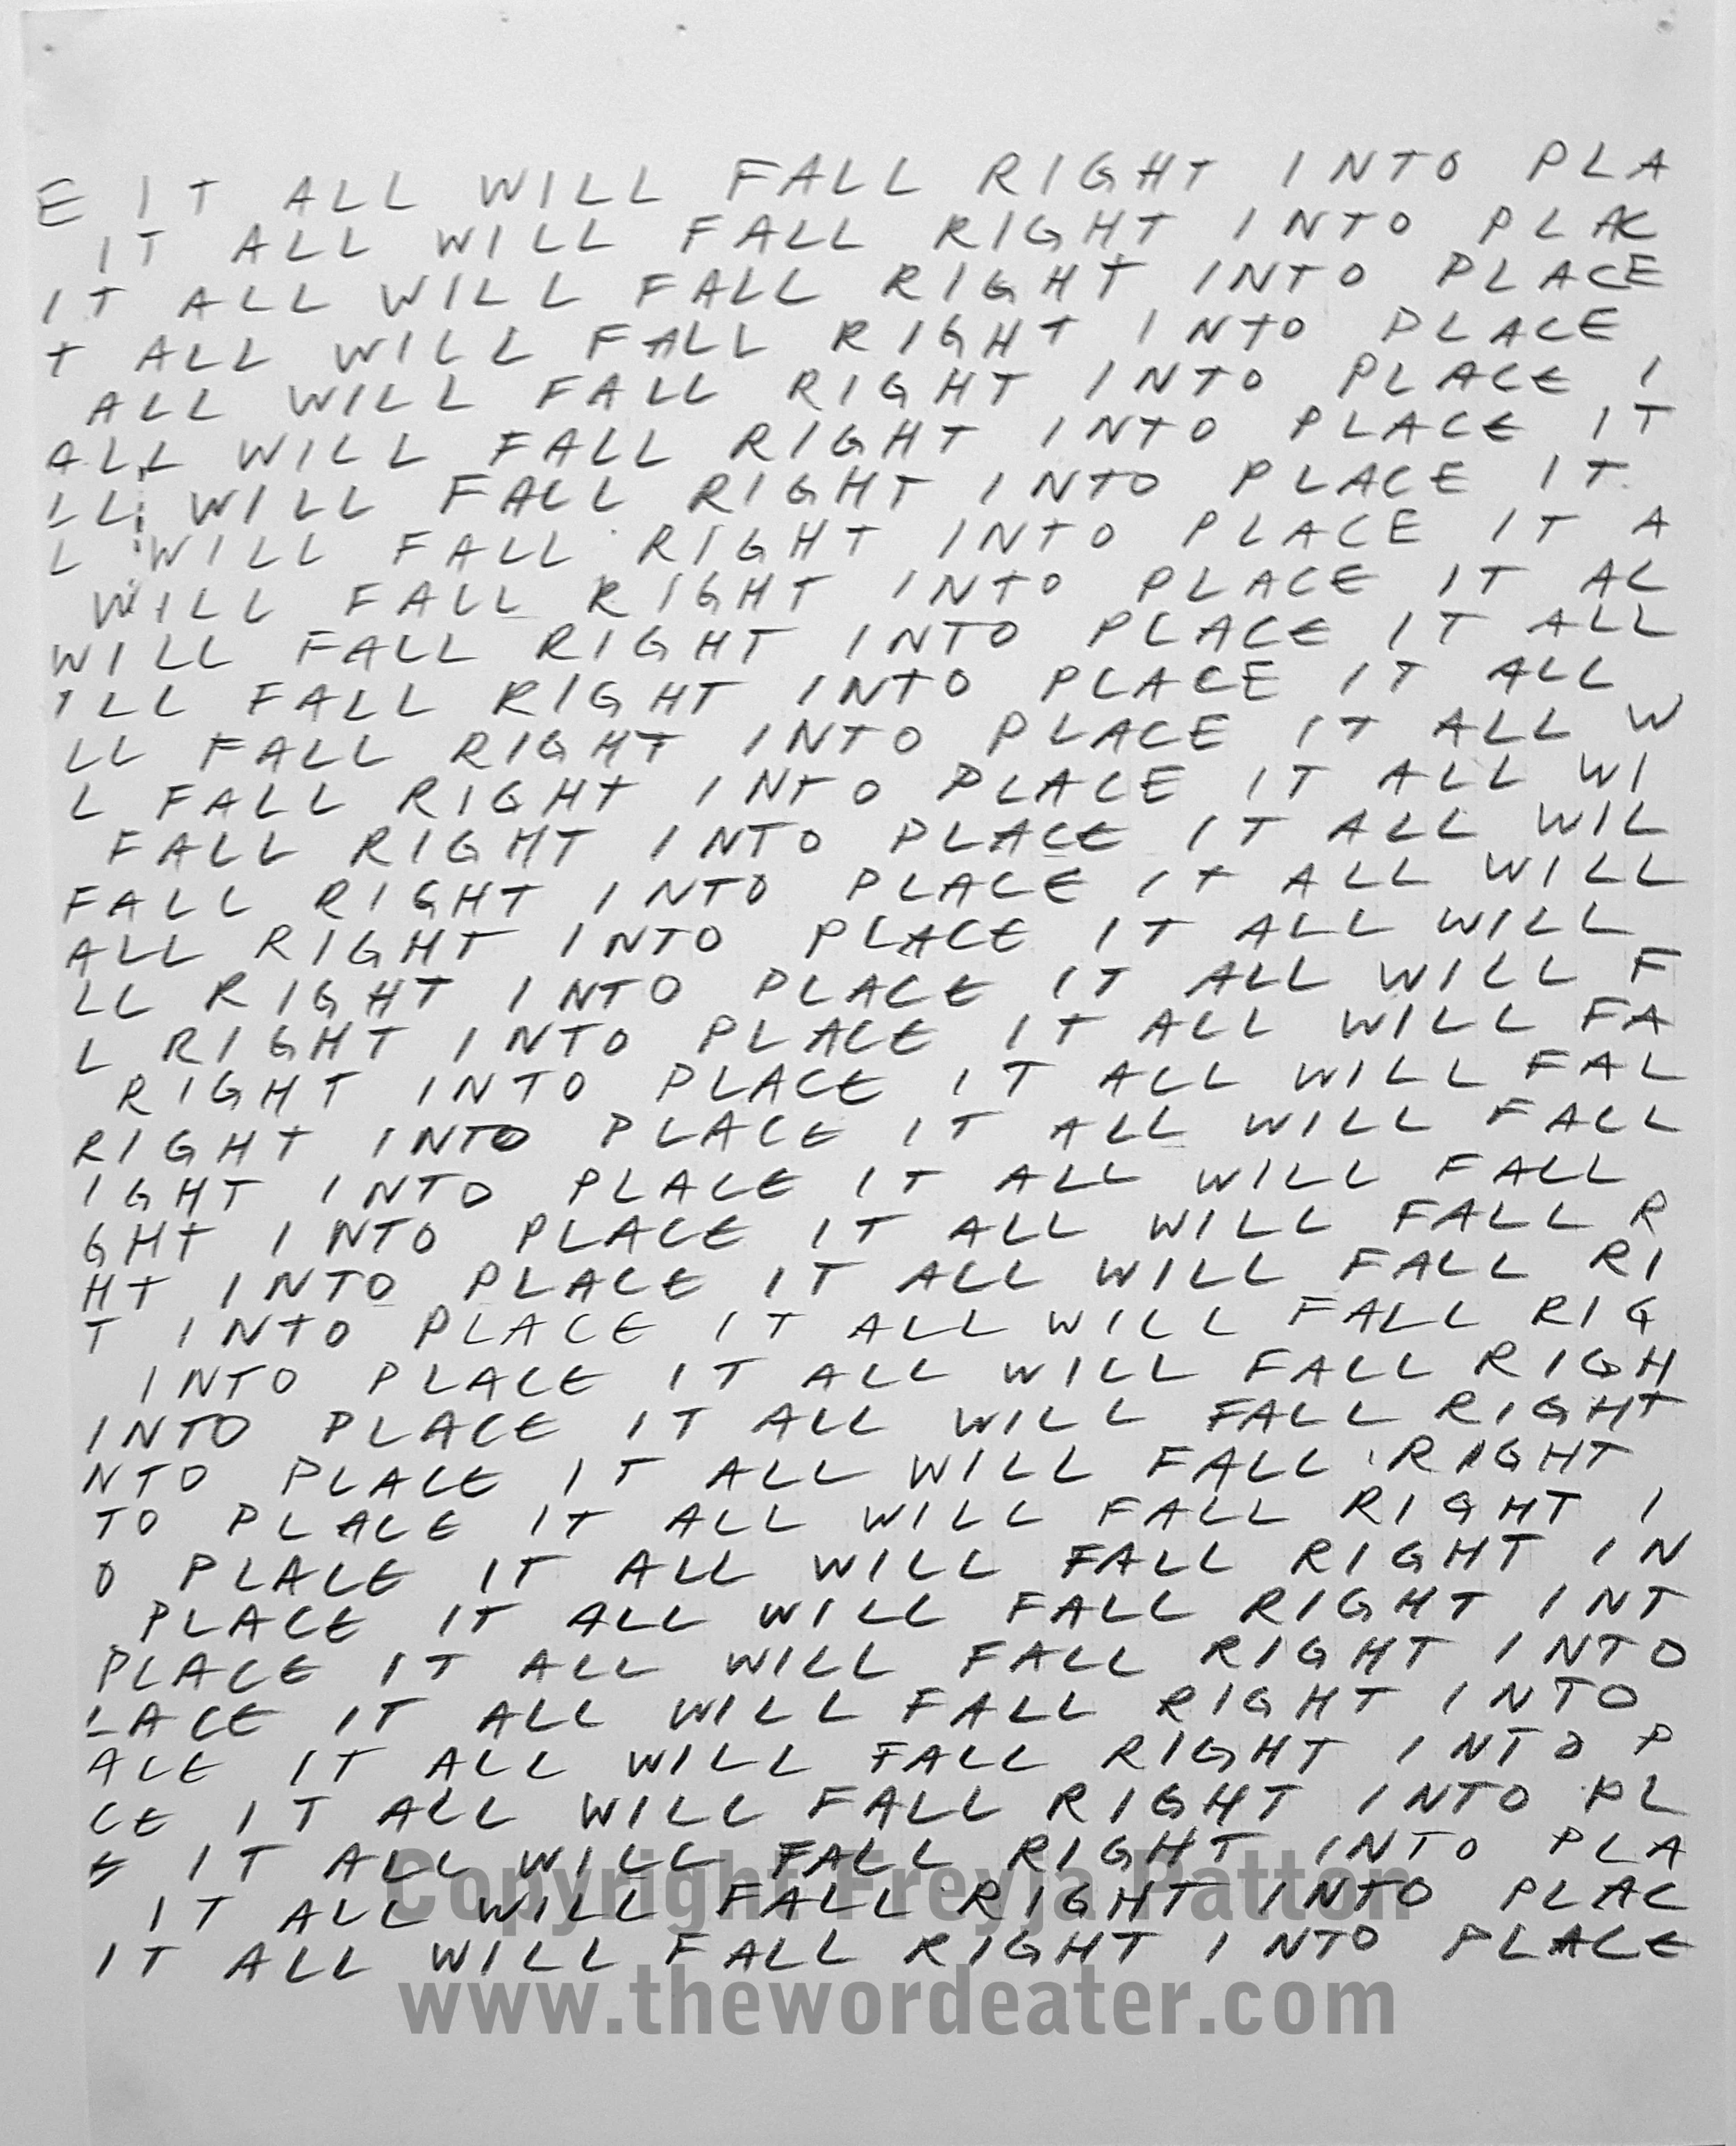 E IT ALL WILL FALL RIGHT INTO PLA
IT ALL WILL FALL RIGHT INTO PLAC
IT ALL WILL FALL RIGHT INTO PLACE
T ALL WILL FALL RIGHT INTO PLACE
ALL WILL FALL RIGHT INTO PLACE I
ALL WILL FALL RIGHT INTO PLACE IT
LL WILL FALL RIGHT INTO PLACE IT
L WILL FALL RIGHT INTO PLACE IT A
WILL FALL RIGHT INTO PLACE IT AL
WILL FALL RIGHT INTO PLACE IT ALL
ILL FALL RIGHT INTO PLACE IT ALL
LL FALL RIGHT INTO PLACE IT ALL W
L FALL RIGHT INTO PLACE IT ALL WI
FALL RIGHT INTO PLACE IT ALL WIL
FALL RIGHT INTO PLACE IT ALL WILL
ALL RIGHT INTO PLACE IT ALL WILL
LL RIGHT INTO PLACE IT ALL WILL F
L RIGHT INTO PLACE IT ALL WILL FA
RIGHT INTO PLACE IT ALL WILL FAL
RIGHT INTO PLACE IT ALL WILL FALL
IGHT INTO PLACE IT ALL WILL FALL
GHT INTO PLACE IT ALL WILL FALL R
HT INTO PLACE IT ALL WILL FALL RI
T INTO PLACE IT ALL WILL FALL RIG
INTO PLACE IT ALL WILL FALL RIGH
INTO PLACE IT ALL WILL FALL RIGHT
NTO PLACE IT ALL WILL FALL RIGHT
TO PLACE IT ALL WILL FALL RIGHT I
O PLACE IT ALL WILL FALL RIGHT IN
PLACE IT ALL WILL FALL RIGHT INT
PLACE IT ALL WILL FALL RIGHT INTO
LACE IT ALL WILL FALL RIGHT INTO
ACE IT ALL WILL FALL RIGHT INTO P
CE IT ALL WILL FALL RIGHT INTO PL
E IT ALL WILL FALL RIGHT INTO PLA
IT ALL WILL FALL RIGHT INTO PLAC
IT ALL WILL FALL RIGHT INTO PLACE
Copyright Freyja Patton
www.thewordeater.com